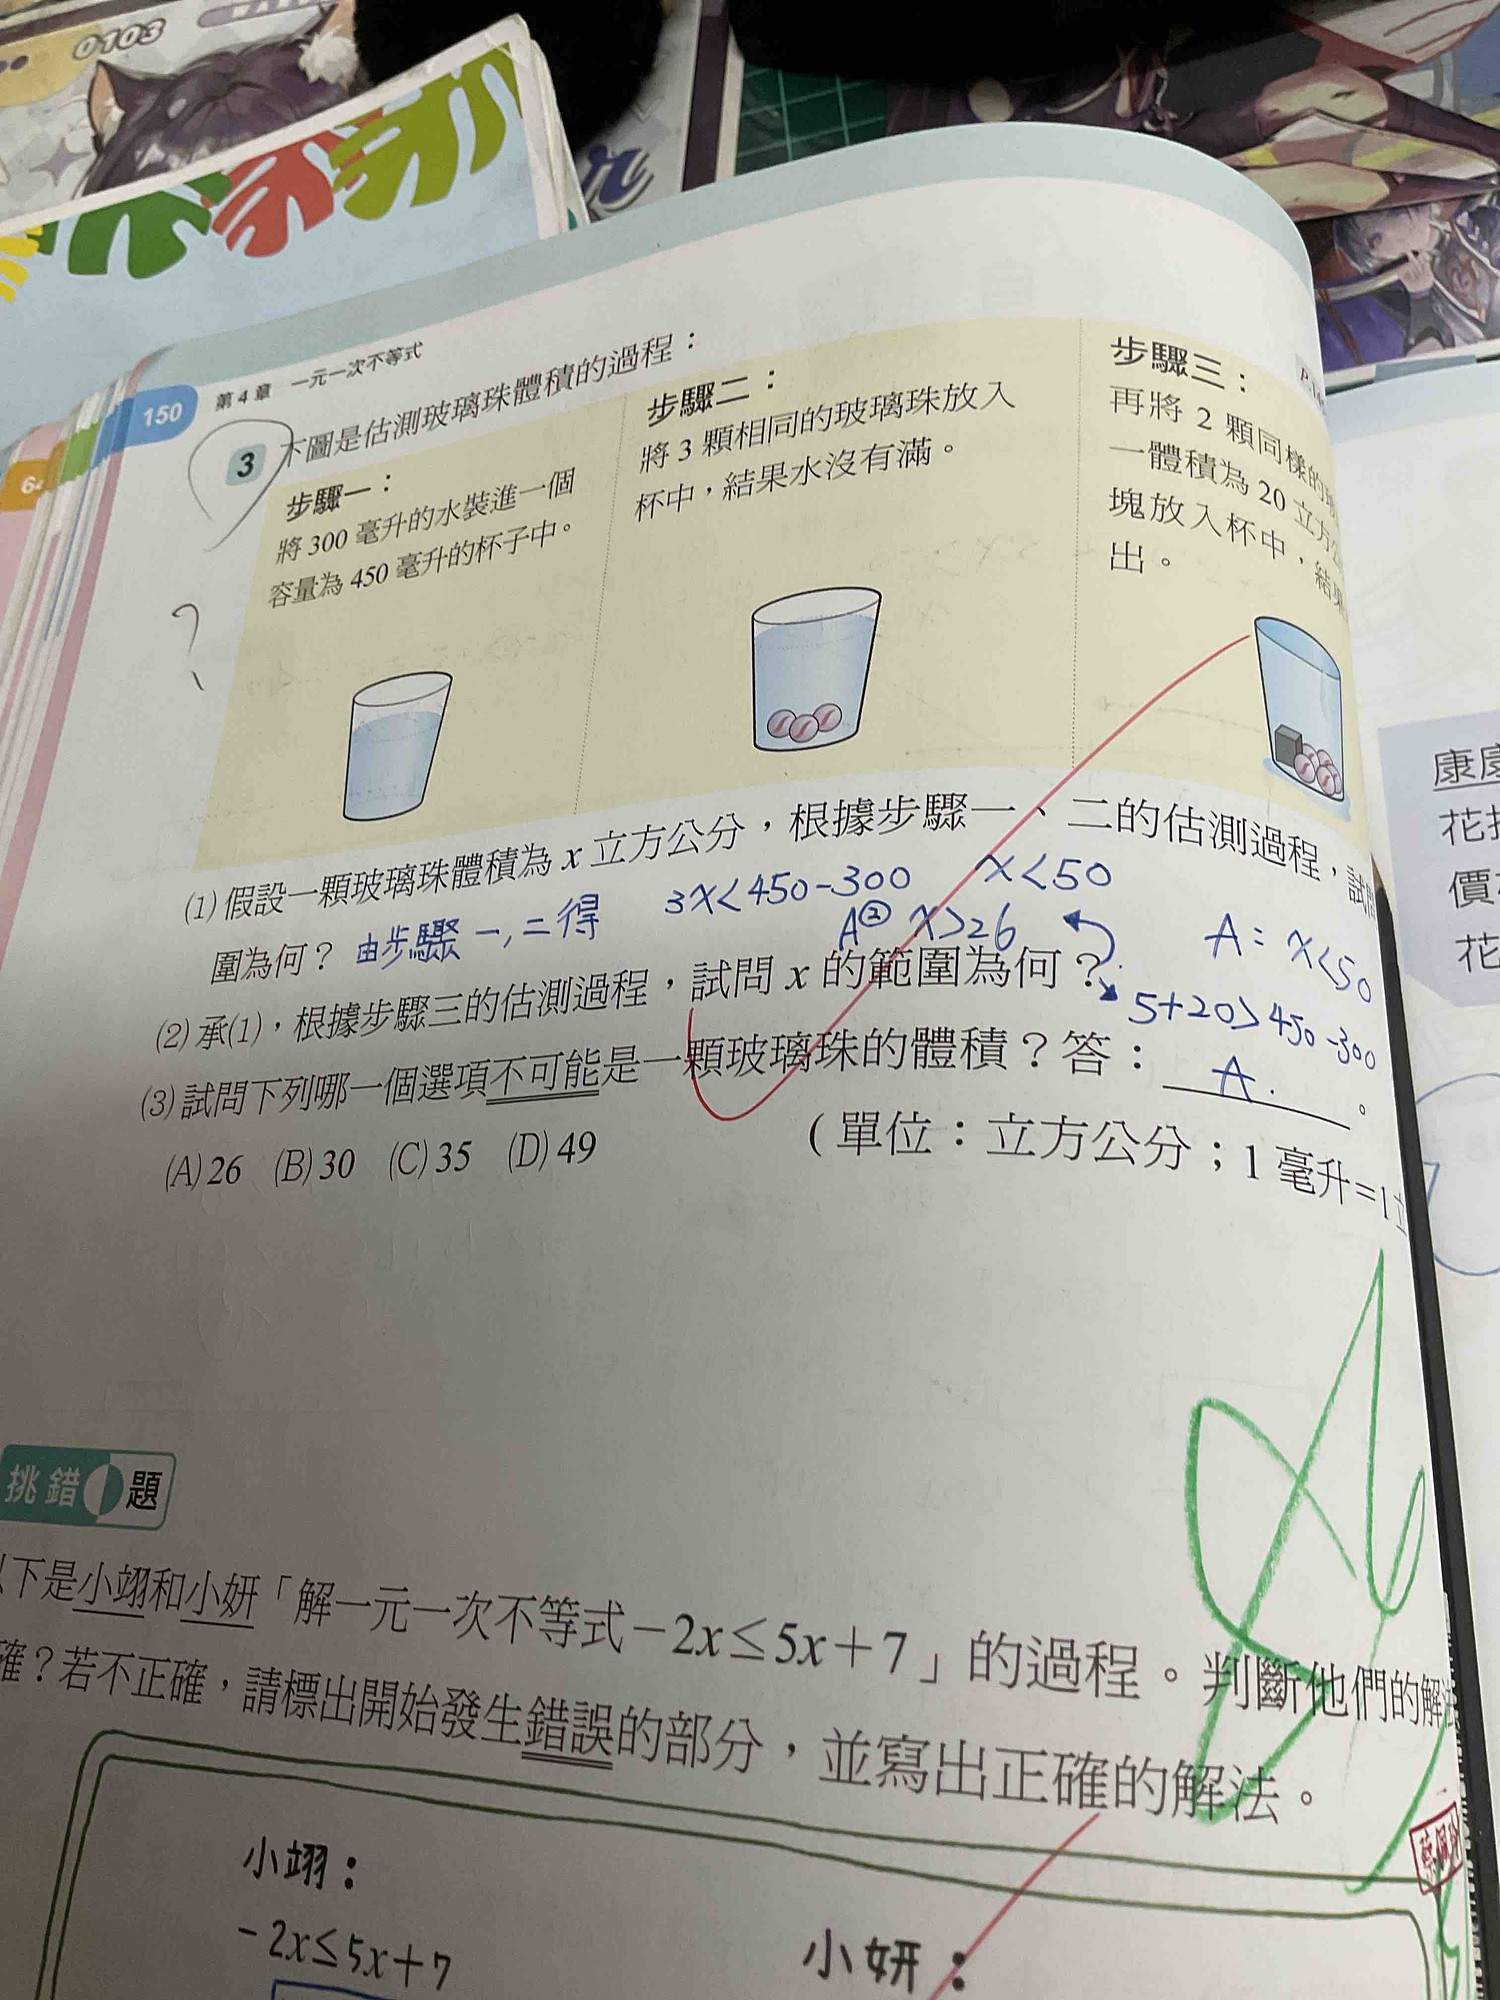 0103
150
第4章 一元一次不等式
3 下圖是估測玻璃珠體積的過程：
步驟一：
將300毫升的水裝進一個
容量為450毫升的杯子中。
步驟二：
將3顆相同的玻璃珠放入
杯中，結果水沒有滿。
步驟三：
再將2顆同樣的
一體積為20立方
塊放入杯中，結果
出。
?
(1)假設一顆玻璃珠體積為x立方公分，根據步驟一、二的估測過程，試問
圍為何？
由步驟一,二得
3x<450-300 x<50
A② x>26
A: x<50
(2)承(1)，根據步驟三的估測過程，試問x的範圍為何？
5+20>450-300
(3)試問下列哪一個選項不可能是一顆玻璃珠的體積？答： A. 。
(A)26 (B)30 (C)35 (D)49
(單位：立方公分；1毫升=1
挑錯題
以下是小翊和小妍「解一元一次不等式-2x≤5x+7」的過程。判斷他們的解法
確？若不正確，請標出開始發生錯誤的部分，並寫出正確的解法。
小翊：
-2x≤5x+7
小妍：
康康
花
價
花